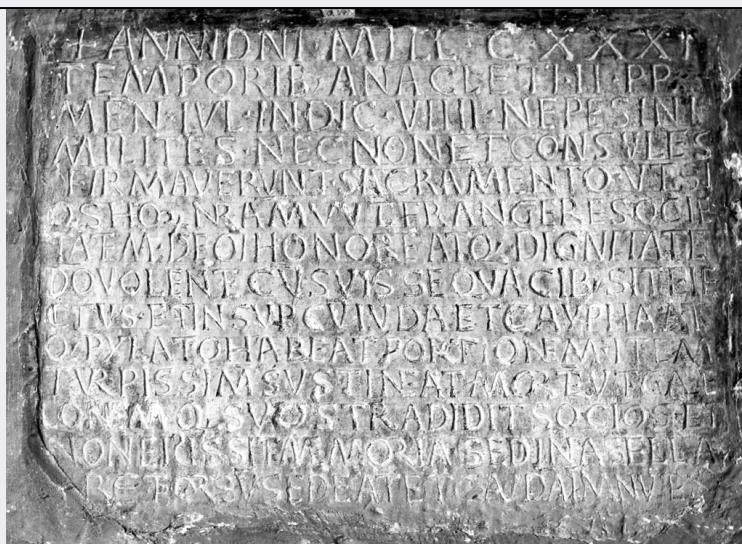 + ANNI DNI MILL C XXXI
TEMPORIB · ANACLETI · II · PP
MEN · IVL · INDIC · VIIII · NEPESINI
MILITES · NEC NON ET CONSVLES
FIRMAVERVNT · SACRAMENTO · VT SI
NRAM VVLT FRANGERE SOCIE
TATEM · DE OI HONORE ATQ DIGNITATE
DO VOLENT CV SVIS SEQVACIB · SIT EIE
CTVS · ET INSVP CV IVDA ET CAYPHA AT
Q · PYLATO HABEAT PORTIONEM · ITEM
TVRPISSIM SVSTINEAT VT GAL
SVOS TRADIDIT SOCIOS · ET
NON EI SIT MEMORIA SED IN ASELLA
SEDEAT ET CAVDA IN